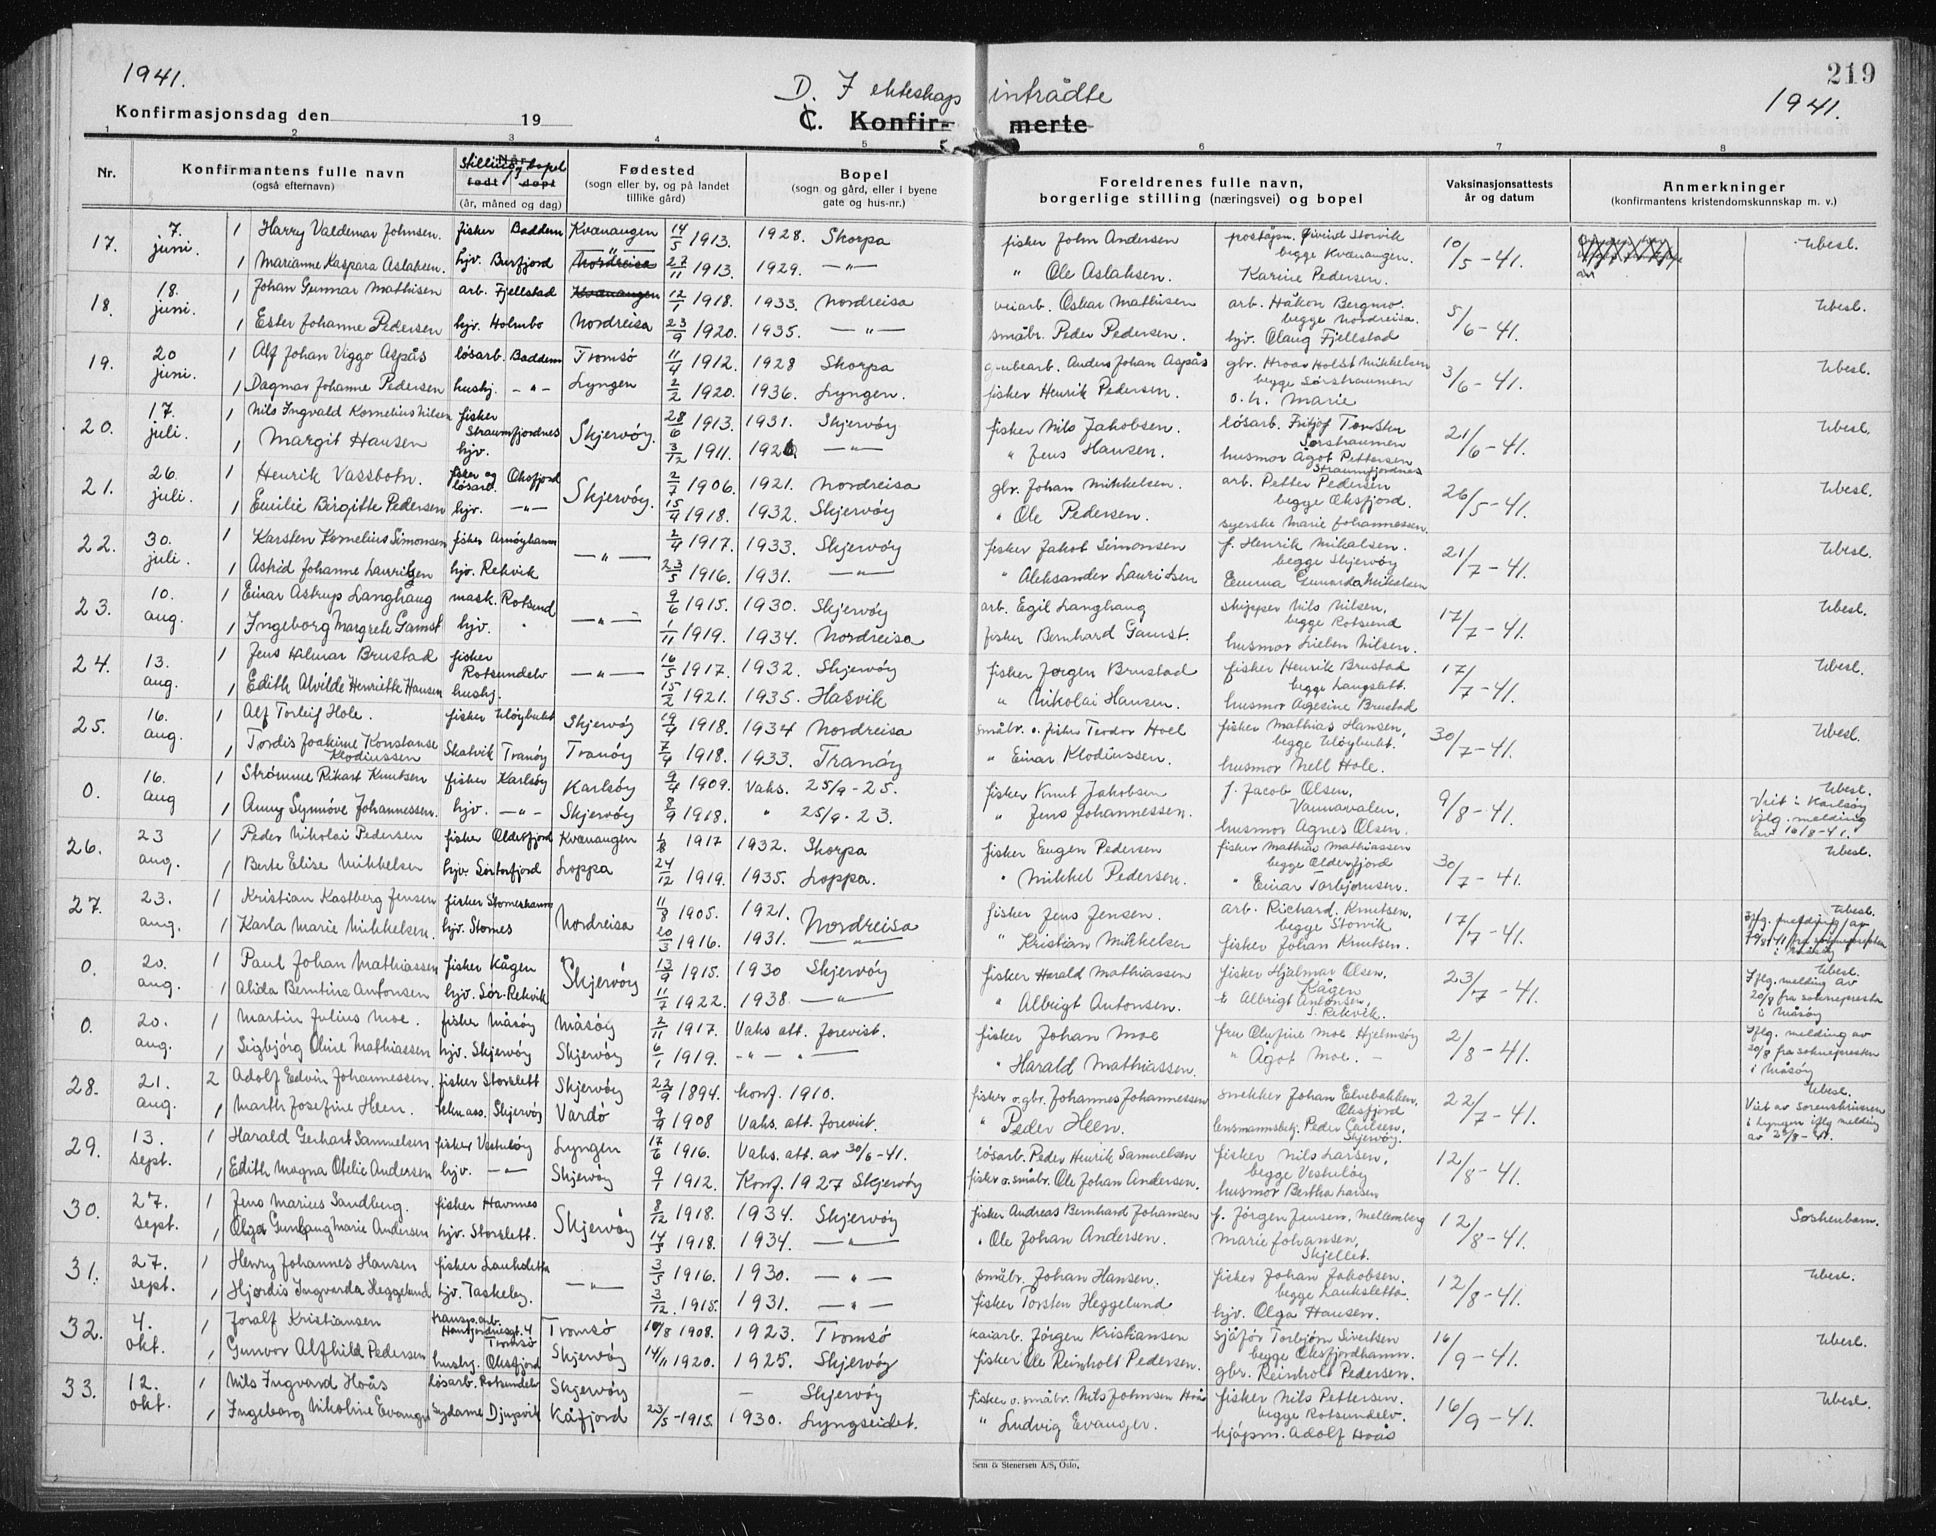 1941.
219
D. I ekteskap inntrådte
1941.
Konfirmasjonsdag den 19
C. Konfirmerte
1 2 3 4 5 6 7 8
Nr.
Konfirmantens fulle navn
(også efternavn)
Stilling og bopel
Når
født døpt
(år, måned og dag)
Fødested
(sogn eller by, og på landet
tillike gård)
Bopel
(sogn og gård, eller i byene
gate og hus-nr.)
Foreldrenes fulle navn,
borgerlige stilling (næringsvei) og bopel
Vaksinasjonsattests
år og datum
Anmerkninger
(konfirmantens kristendomskunnskap m. v.)
17. 7. juni. 1 Harry Valdemar Johnsen. fisker Baddern Kvænangen 14/5 1913. 1928. Skorpa fisker John Andersen poståpn. Øivind Storvik begge Kvænangen. 10/5-41. Ubesl.
1 Marianne Kaspara Aslaksen. hjv. Burfjord Nordreisa 27/11 1913. 1929. —"— " Ole Aslaksen. Karine Pedersen.
18. 18. juni. 1 Johan Gunnar Mathisen arb. Fjellstad Kvænangen 12/7 1918. 1933. Nordreisa veiarb. Oskar Mathisen arb. Håkon Bergmo. begge Nordreisa. 5/6-41. Ubesl.
1 Ester Johanne Pedersen hjv. Holmbo Nordreisa 23/9 1920. 1935. —"— småbr. Peder Pedersen. hjv. Olaug Fjellstad
19. 20 juni. 1 Alf Johan Viggo Aspås løsarb. Baddern Tromsø 11/4 1912. 1928 Skorpa grubearb. Anders Johan Aspås gbr. Hroar Holst Mikkelsen begge Sørstraumen 3/6-41. Ubesl.
1 Dagmar Johanne Pedersen hushj. —"— Lyngen 2/2 1920. 1936. Lyngen. fisker Henrik Pedersen. o. h. Marie
20. 17. juli. 1 Nils Ingvald Kornelius Nilsen fisker Straumfjordnes Skjervøy. 28/6 1913. 1931. Skjervøy fisker Nils Jakobsen. løsarb. Fritjof Torsten Sørstraumen 21/6-41. Ubesl.
1 Margit Hansen hjv. 3/12 1911. 1926. —"— " Jens Hansen. husmor Ågot Pettersen Straumfjordnes
21. 26. juli. 1 Henrik Vassbotn. fisker og løsarb. Oksfjord Skjervøy. 2/7 1906. 1921. Nordreisa gbr. Johan Mikkelsen. arb. Petter Pedersen begge Oksfjord. 26/5-41. Ubesl.
1 Emilie Birgitte Pedersen hjv. —"— 15/9 1918. 1932. Skjervøy " Ole Pedersen. syerske Marie Johannessen.
22. 30. juli. 1 Karsten Kornelius Simonsen fisker Arnøyhamn —"— 2/4 1917. 1933. Skjervøy fisker Jakob Simonsen f. Henrik Mikalsen. begge Skjervøy 21/7-41. Ubesl.
1 Astrid Johanne Lauritzen hjv. Rekvik 23/5 1916. 1931. —"— " Aleksander Lauritsen Emma Gunarda Mikalsen
23. 10. aug. 1 Einar Astrup Langhaug mask. Rotsund —"— 9/6 1915. 1930. Skjervøy arb. Egil Langhaug skipper Nils Nilsen, begge Rotsund 17/7-41. Ubesl.
1 Ingeborg Margrete Gamst hjv. " 1/11 1919. 1934. Nordreisa fisker Bernhard Gamst. husmor Lieben Nilsen.
24. 13. aug. 1 Jens Hilmar Brustad fisker Rotsundelv —"— 16/5 1917. 1932. Skjervøy fisker Jørgen Brustad fisker Henrik Brustad begge Langslett. 17/7-41. Ubesl.
1 Edith Alvilde Henriette Hansen hushj. 15/2 1921. 1935. Hasvik " Nikolai Hansen. husmor Agesine Brustad
25. 16. aug. 1 Alf Torleif Hole. fisker Uløybukt Skjervøy 19/9 1918. 1934 Nordreisa småbr. o. fisker Teodor Hoel fisker Mathias Hansen, begge Uløybukt. 30/7-41. Ubesl.
1 Tordis Joakime Konstanse Klodiussen Skatvik Tranøy Tranøy 7/9 1918. 1933. Tranøy " Einar Klodiussen. husmor Nell Hole.
0. 16. aug 1 Strømme Rikart Knutsen fisker Karlsøy Karlsøy 9/4 1909. Vaks. 25/9-25. fisker Knut Jakobsen f. Jacob Olsen, Vannavalen, 9/8-41. Ubesl. Viet i Karlsøy iflg. melding av 16/8-41.
1 Anny Synnøve Johannessen. hjv. —"— Skjervøy 8/9 1918. " 25/9-23. " Jens Johannessen. husmor Agnes Olsen.
26. 23 aug. 1 Peder Nikolai Pedersen fisker Olderfjord Kvænangen 1/8 1917 1932. Skorpa fisker Eugen Pedersen fisker Mathias Mathiassen begge Olderfjord 30/7-41. Ubesl.
1 Berte Elise Mikkelsen hjv. Sørtorfjord Loppa 24/12 1919. 1935. Loppa. " Mikkel Pedersen. " Einar Torbjørnsen.
27. 23. aug. 1 Kristian Kastberg Jensen fisker Storneshamn Nordreisa 11/8 1905. 1921. Nordreisa fisker Jens Jensen. arb. Richard. Knutsen, begge Storvik 17/7-41. Ubesl.
1 Karla Marie Mikkelsen. hjv. Stornes 20/3 1916. 1931. —"— " Kristian Mikkelsen fisker Johan Knutsen.
0. 20. aug. 1 Paul Johan Mathiassen fisker Kågen Skjervøy 13/9 1915. 1930 Skjervøy fisker Harald Mathiassen fisker Hjalmar Olsen, Kågen 23/7-41. Ubesl. Iflg. melding av 20/8 fra soknepresten i Måsøy
1 Alida Berntine Antonsen. hjv. Sør-Rekvik 11/7 1922. 1938. —"— " Albrigt Antonsen. Albrigt Antonsen, S. Rekvik.
0. 20. aug. 1 Martin Julius Moe. fisker Måsøy Måsøy 2/11 1917. Vaks att. forevist. fisker Johan Moe fru Olufine Moe Hjelmsøy 2/8-41. Iflg. melding av 20/8 fra soknepresten i Måsøy
1 Sigbjørg Oline Mathiassen hjv. Skjervøy Skjervøy 6/1 1919. —"— " Harald Mathiassen. " Ågot Moe. —
28. 21. aug. 2 Adolf Edvin Johannessen. fisker Storslett Skjervøy 22/9 1894. Konf. 1910. fisker o. gbr. Johannes Johannessen snekker Johan Elvebakken, Oksfjord 22/7-41. Ubesl. Viet av sorenskriveren i Lyngen iflg melding av 21/8-41.
1 Marth Josefine Heen. Skjervøy Vardø 9/9 1908 Vaks. att. forevist. " Peder Heen. lensmannsbetj. Peder Carlsen, Skjervøy.
29. 13. sept. 1 Harald Gerhart Samuelsen fisker Vesteløy Lyngen 17/6 1916. Vaks. att. av 30/6-41. løsarb. Peder Henrik Samuelsen fisker Nils Larsen, begge Vesteløy 12/8-41. Ubesl.
1 Edith Magna Otelie Andersen hjv. —"— Skjervøy 9/1 1912. Konf. 1927 Skjervøy fisker o. småbr. Ole Johan Andersen. husmor Bertha Larsen
30. 27. sept. 1 Jens Marius Sandberg. fisker Havnnes Skjervøy 8/12 1918. 1934. Skjervøy fisker Andreas Bernhard Johansen f. Jørgen Jensen, Mellemberg 12/8-41. Søskenbarn.
1 Olga Gunlaug Marie Andersen hjv. Storslett. 14/5 1918. 1934. —"— " Ole Johan Andersen. Marie Johansen, Skjellet.
31. 27. sept. 1 Henry Johannes Hansen fisker Lauksletta —"— 3/5 1916. 1930. —"— småbr. Johan Hansen. fisker Johan Jakobsen. begge Lauksletta 12/8-41. Ubesl.
1 Hjørdis Ingvarda Heggelund hjv. Taskeby. 3/12 1915. 1931. —"— fisker Torsten Heggelund hjv. Olga Hansen.
32. 4. okt. 1 Joralf Kristiansen transp. arb. Tromsø Tromsø 10/8 1908. 1923. Tromsø kaiarb. Jørgen Kristiansen sjåfør Torbjørn Sivertsen begge Oksfjordhamn. 16/9-41. Ubesl.
1 Gunvor Alfhild Pedersen hushj. Oksfjord Skjervøy 14/11 1920. 1925. Skjervøy fisker Ole Reinholt Pedersen. gbr. Reinholt Pedersen.
33. 12. okt. 1 Nils Ingvard Hoås løsarb. Rotsundelv Skjervøy — Skjervøy fisker o. småbr. Nils Johnsen Hoås fisker Nils Pettersen. begge Rotsundelv. 16/9-41. Ubesl.
1 Ingeborg Nikoline Evanger sydame Djupvik Kåfjord 23/5-1915. 1930. Lyngseidet. " Ludvig Evanger. kjøpm. Adolf Hoås
Sem & Stenersen A/S, Oslo.